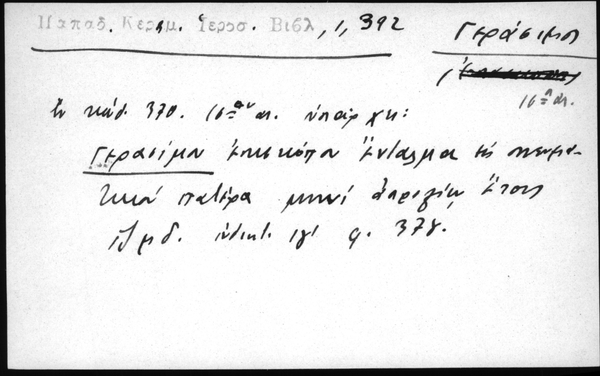 Παπαδ. Κεραμ. Ἱεροσ. Βιβλ, 1, 392
Γεράσιμος
16ος αἰ.
Ἐν κώδ. 370. 16ου αἰ. ὑπάρχει:
Γερασίμου ἐπισκόπου ἔνταλμα εἰς πνευμα-
τικόν πατέρα μηνί ἀπριλίῳ ἔτους
ζμδ. ἰνδικτ. ιγ φ. 378.